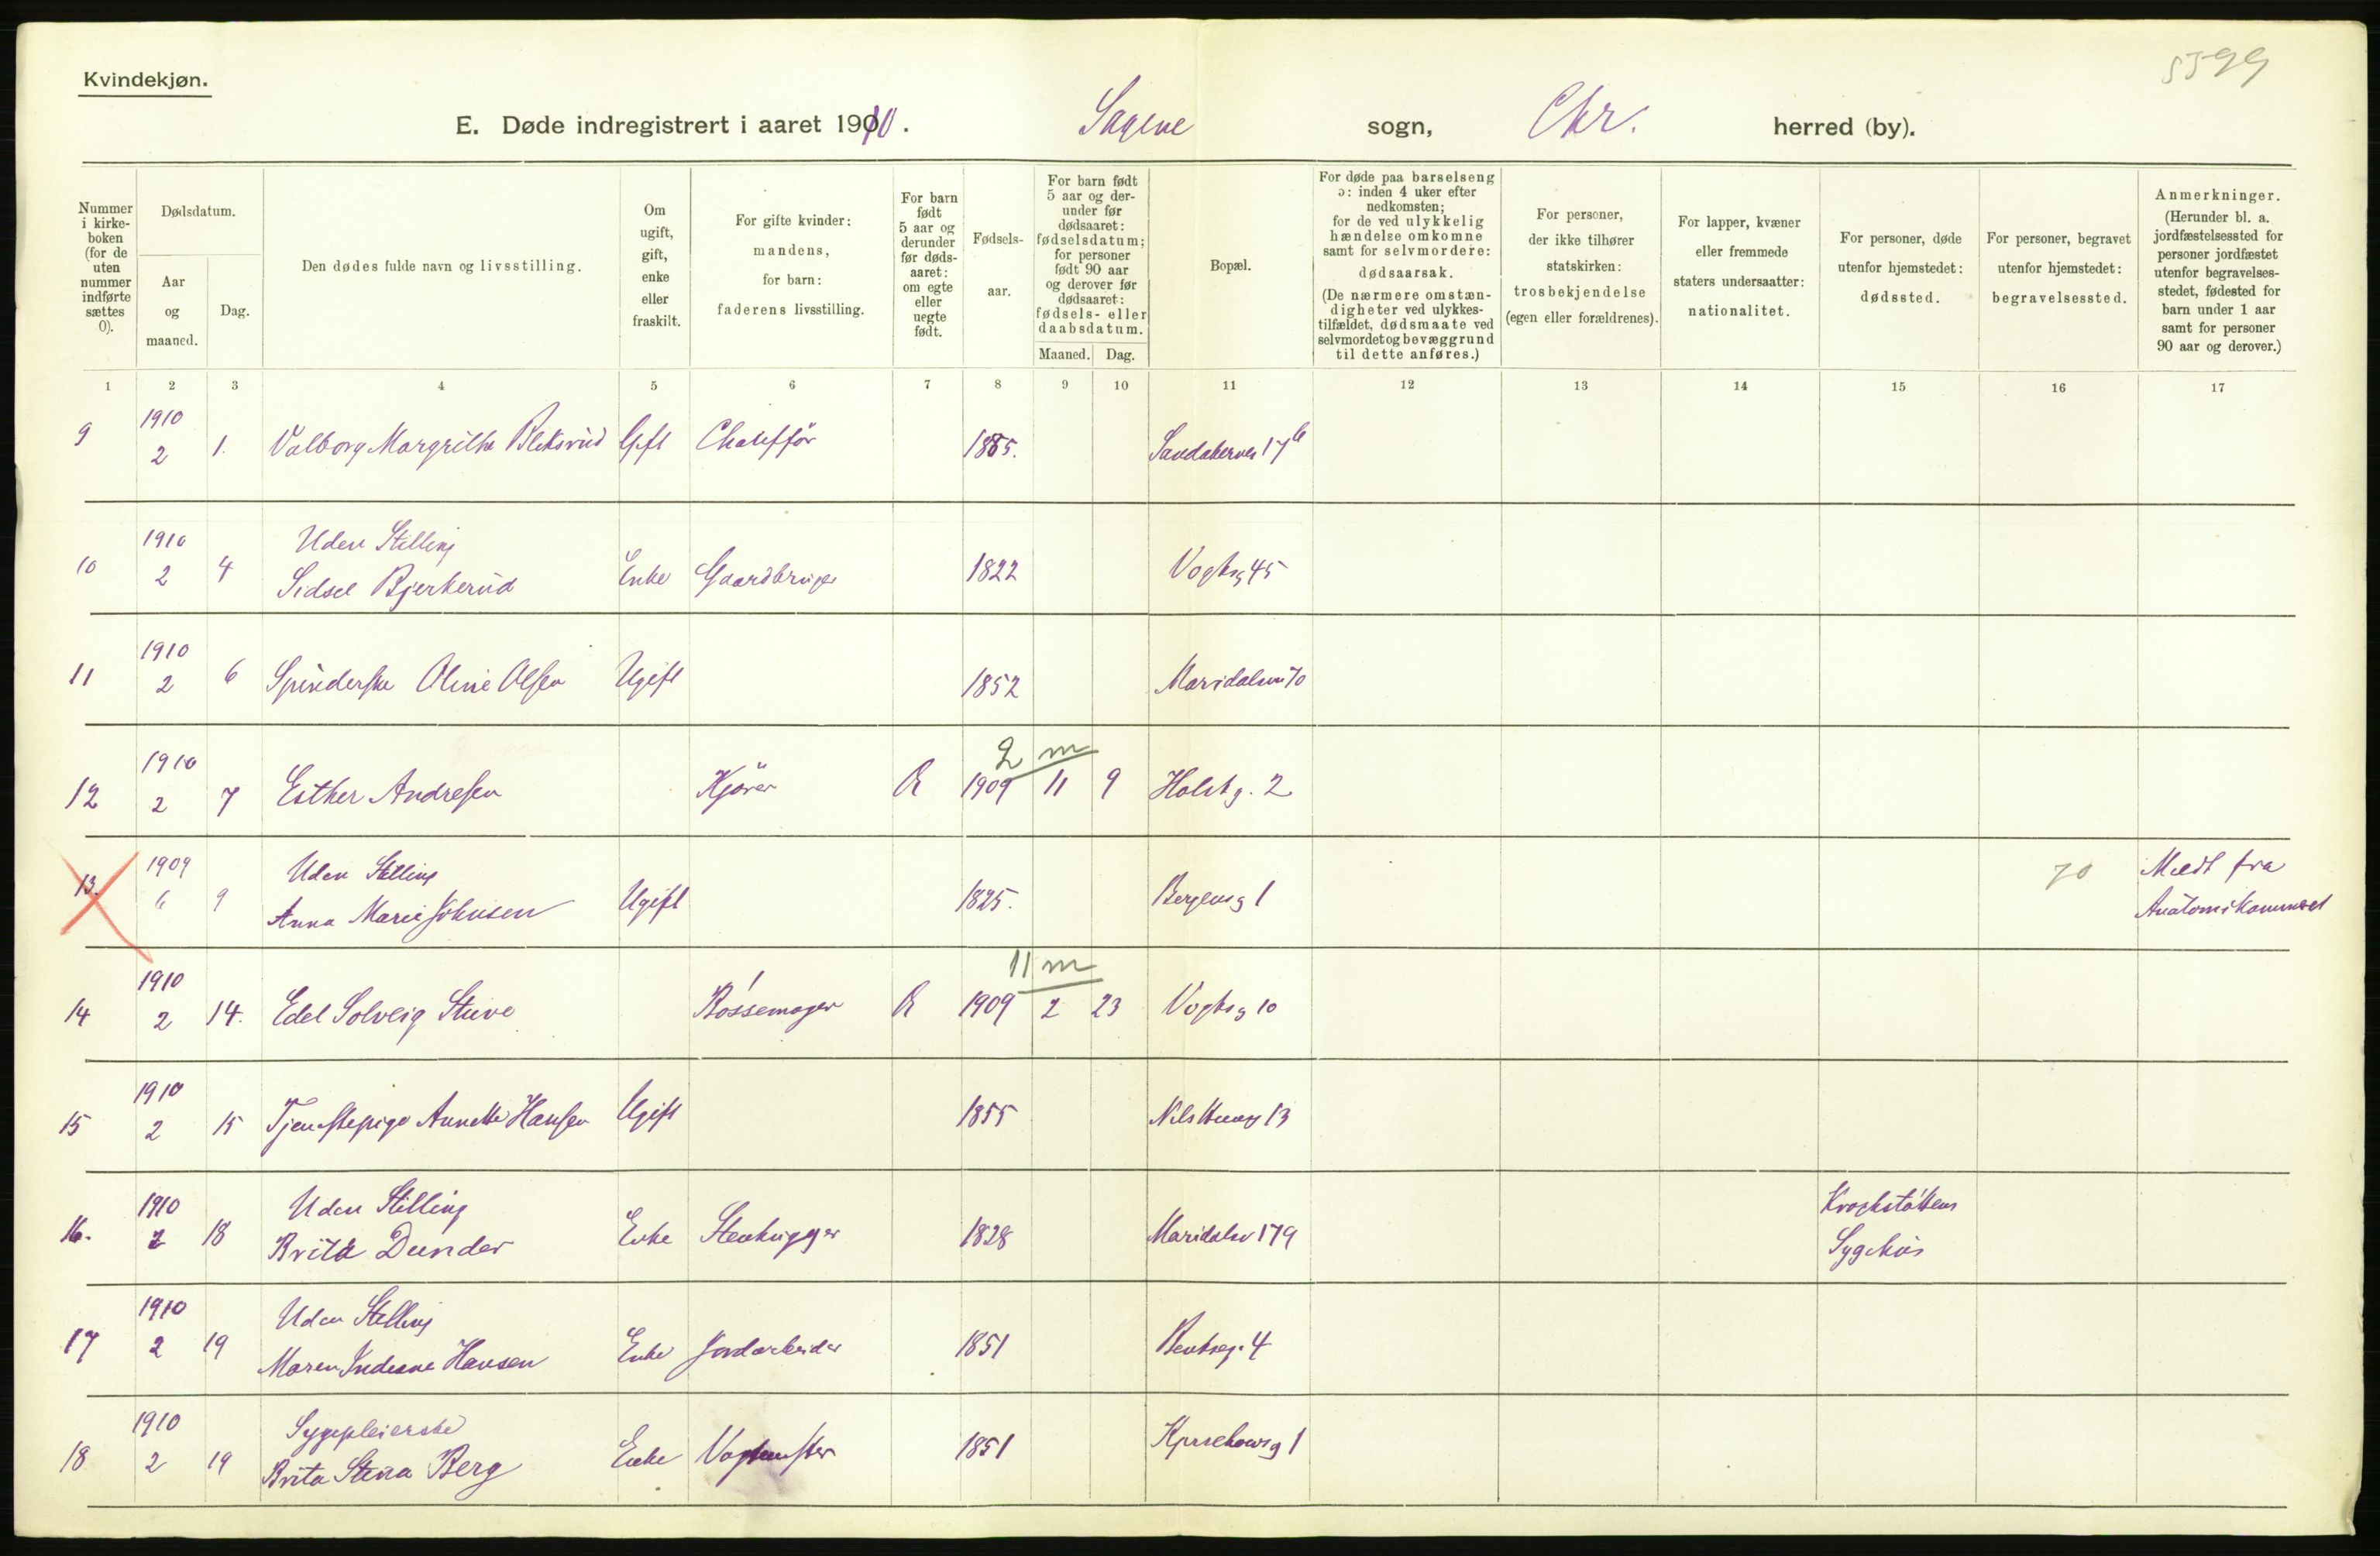 Kvindekjøn.
5599
E. Døde indregistrert i aaret 1910. Sagene sogn, Chr. herred (by).
Nummer i kirke-boken (for de uten nummer indførte sættes 0).
Dødsdatum.
Aar og maaned.
Dag.
Den dødes fulde navn og livsstilling.
Om ugift, gift, enke eller fraskilt.
For gifte kvinder: mandens, for barn: faderens livsstilling.
For barn født 5 aar og derunder før døds-aaret: om egte eller uegte født.
Fødsels-aar.
For barn født 5 aar og der-under før dødsaaret: fødselsdatum; for personer født 90 aar og derover før dødsaaret: fødsels- eller daabsdatum.
Maaned. Dag.
Bopæl.
For døde paa barselseng ɔ: inden 4 uker efter nedkomsten; for de ved ulykkelig hændelse omkomne samt for selvmordere: dødsaarsak. (De nærmere omstæn-digheter ved ulykkes-tilfældet, dødsmaate ved selvmordet og bevæggrund til dette anføres.)
For personer, der ikke tilhører statskirken: trosbekjendelse (egen eller forældrenes).
For lapper, kvæner eller fremmede staters undersaatter: nationalitet.
For personer, døde utenfor hjemstedet: dødssted.
For personer, begravet utenfor hjemstedet: begravelsessted.
Anmerkninger. (Herunder bl. a. jordfæstelsessted for personer jordfæstet utenfor begravelses-stedet, fødested for barn under 1 aar samt for personer 90 aar og derover.)
1 2 3 4 5 6 7 8 9 10 11 12 13 14 15 16 17
1910
9 2 1. Valborg Margrithe Bleksrud Gift Chauffør 1885. Sandakerven 17b
1910 Uden Stilling
10 2 4 Sidsel Bjerkerud Enke Gaardbruger 1822 Vogtsg 45
1910
11 2 6 Spinderske Oline Olsen Ugift 1852 Maridalsvn 70
1910 2 m
12 2 7 Esther Andresen Kjører 1909 11 9 Holstg. 2
1909 Uden Stilling 70 Meldt fra
13. 6 9 Anna Marie Johnsen Ugift 1825. Bergensg 1 Anatomikammeret
1910 11 m
14 2 14. Edel Solveig Stuve Bøssemager 1909 2 23 Vogtsg 10
1910
15 2 15 Tjenestepige Annette Hansen Ugift 1855 Nils 13
1910 Uden Stilling Kroghstøttens
16. 2 18 Brita Dunder Enke Stenhugger 1828 Maridalsv 179 Sygehus
1910 Uden Stilling
17 2 19 Maren Hansen Enke Jordarbeider 1851 Bentseg. 4
1910 Sygepleierske
18 2 19 Brita Stina Berg Enke 1851 1